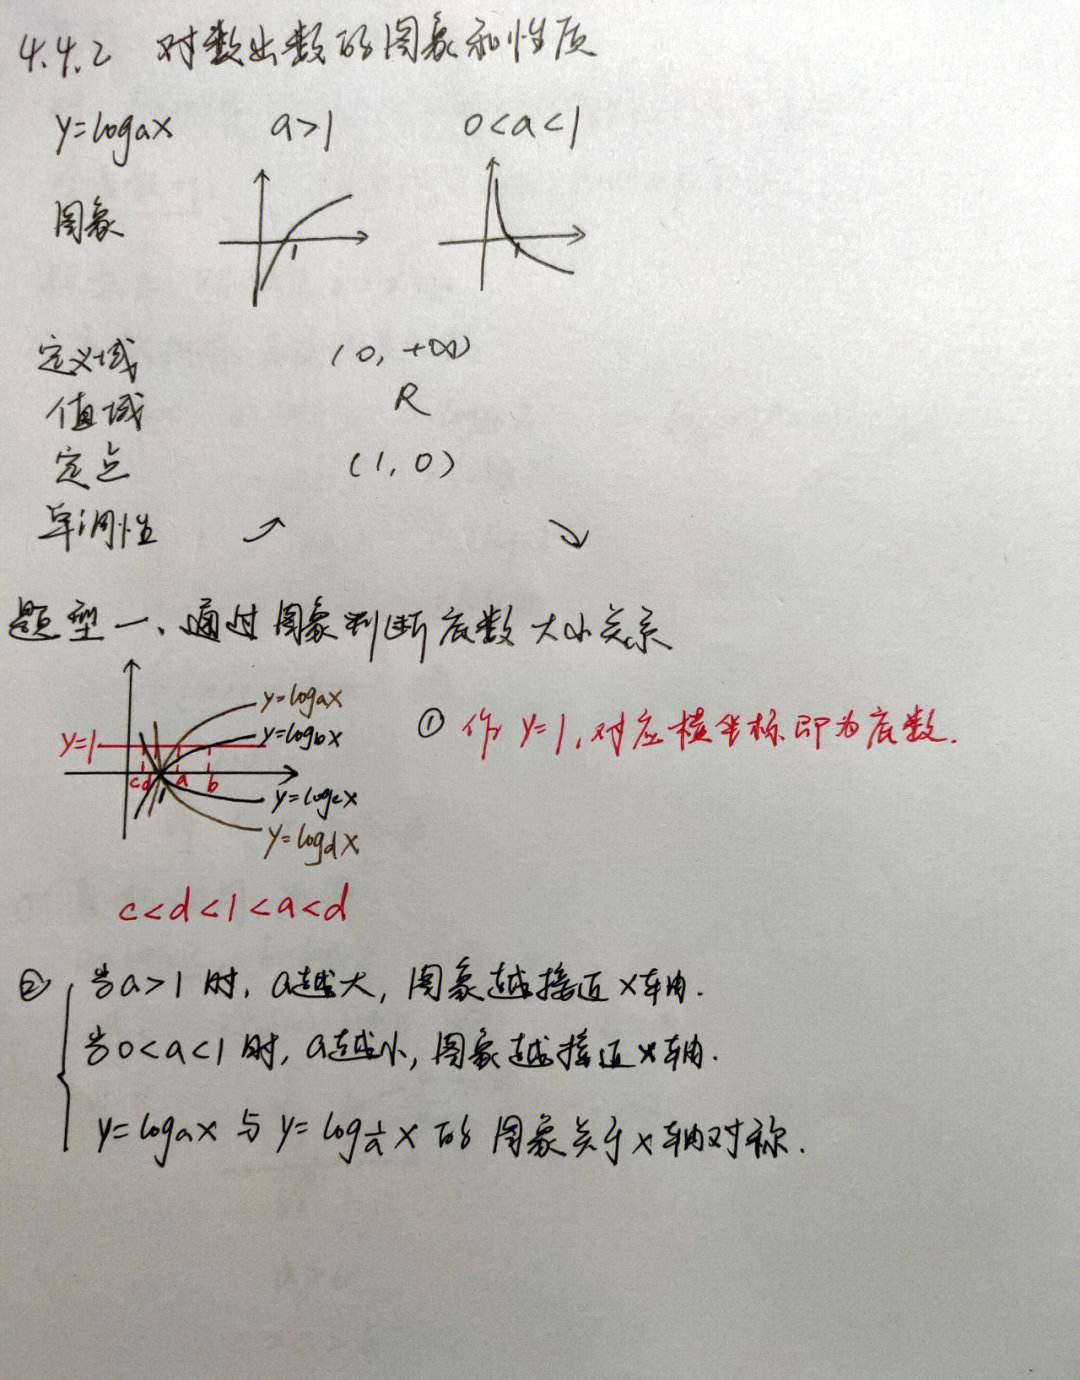 4.4.2 对数出数的图象和性质
y=logax a>1 0<a<1
图象
1 1
定义域 (0,+∞)
值域 R
定点 (1,0)
单调性 ↗ ↘
题型一、通过图象判断底数大小关系
y=logax
y=1 y=logbx ① 作y=1,对应横坐标即为底数.
c d a b
1 y=logcx
y=logdx
c<d<1<a<d
② 当a>1时, a越大, 图象越接近x轴.
当0<a<1时, a越小, 图象越接近x轴.
y=logax 与 y=log1/a x 的图象关于x轴对称.